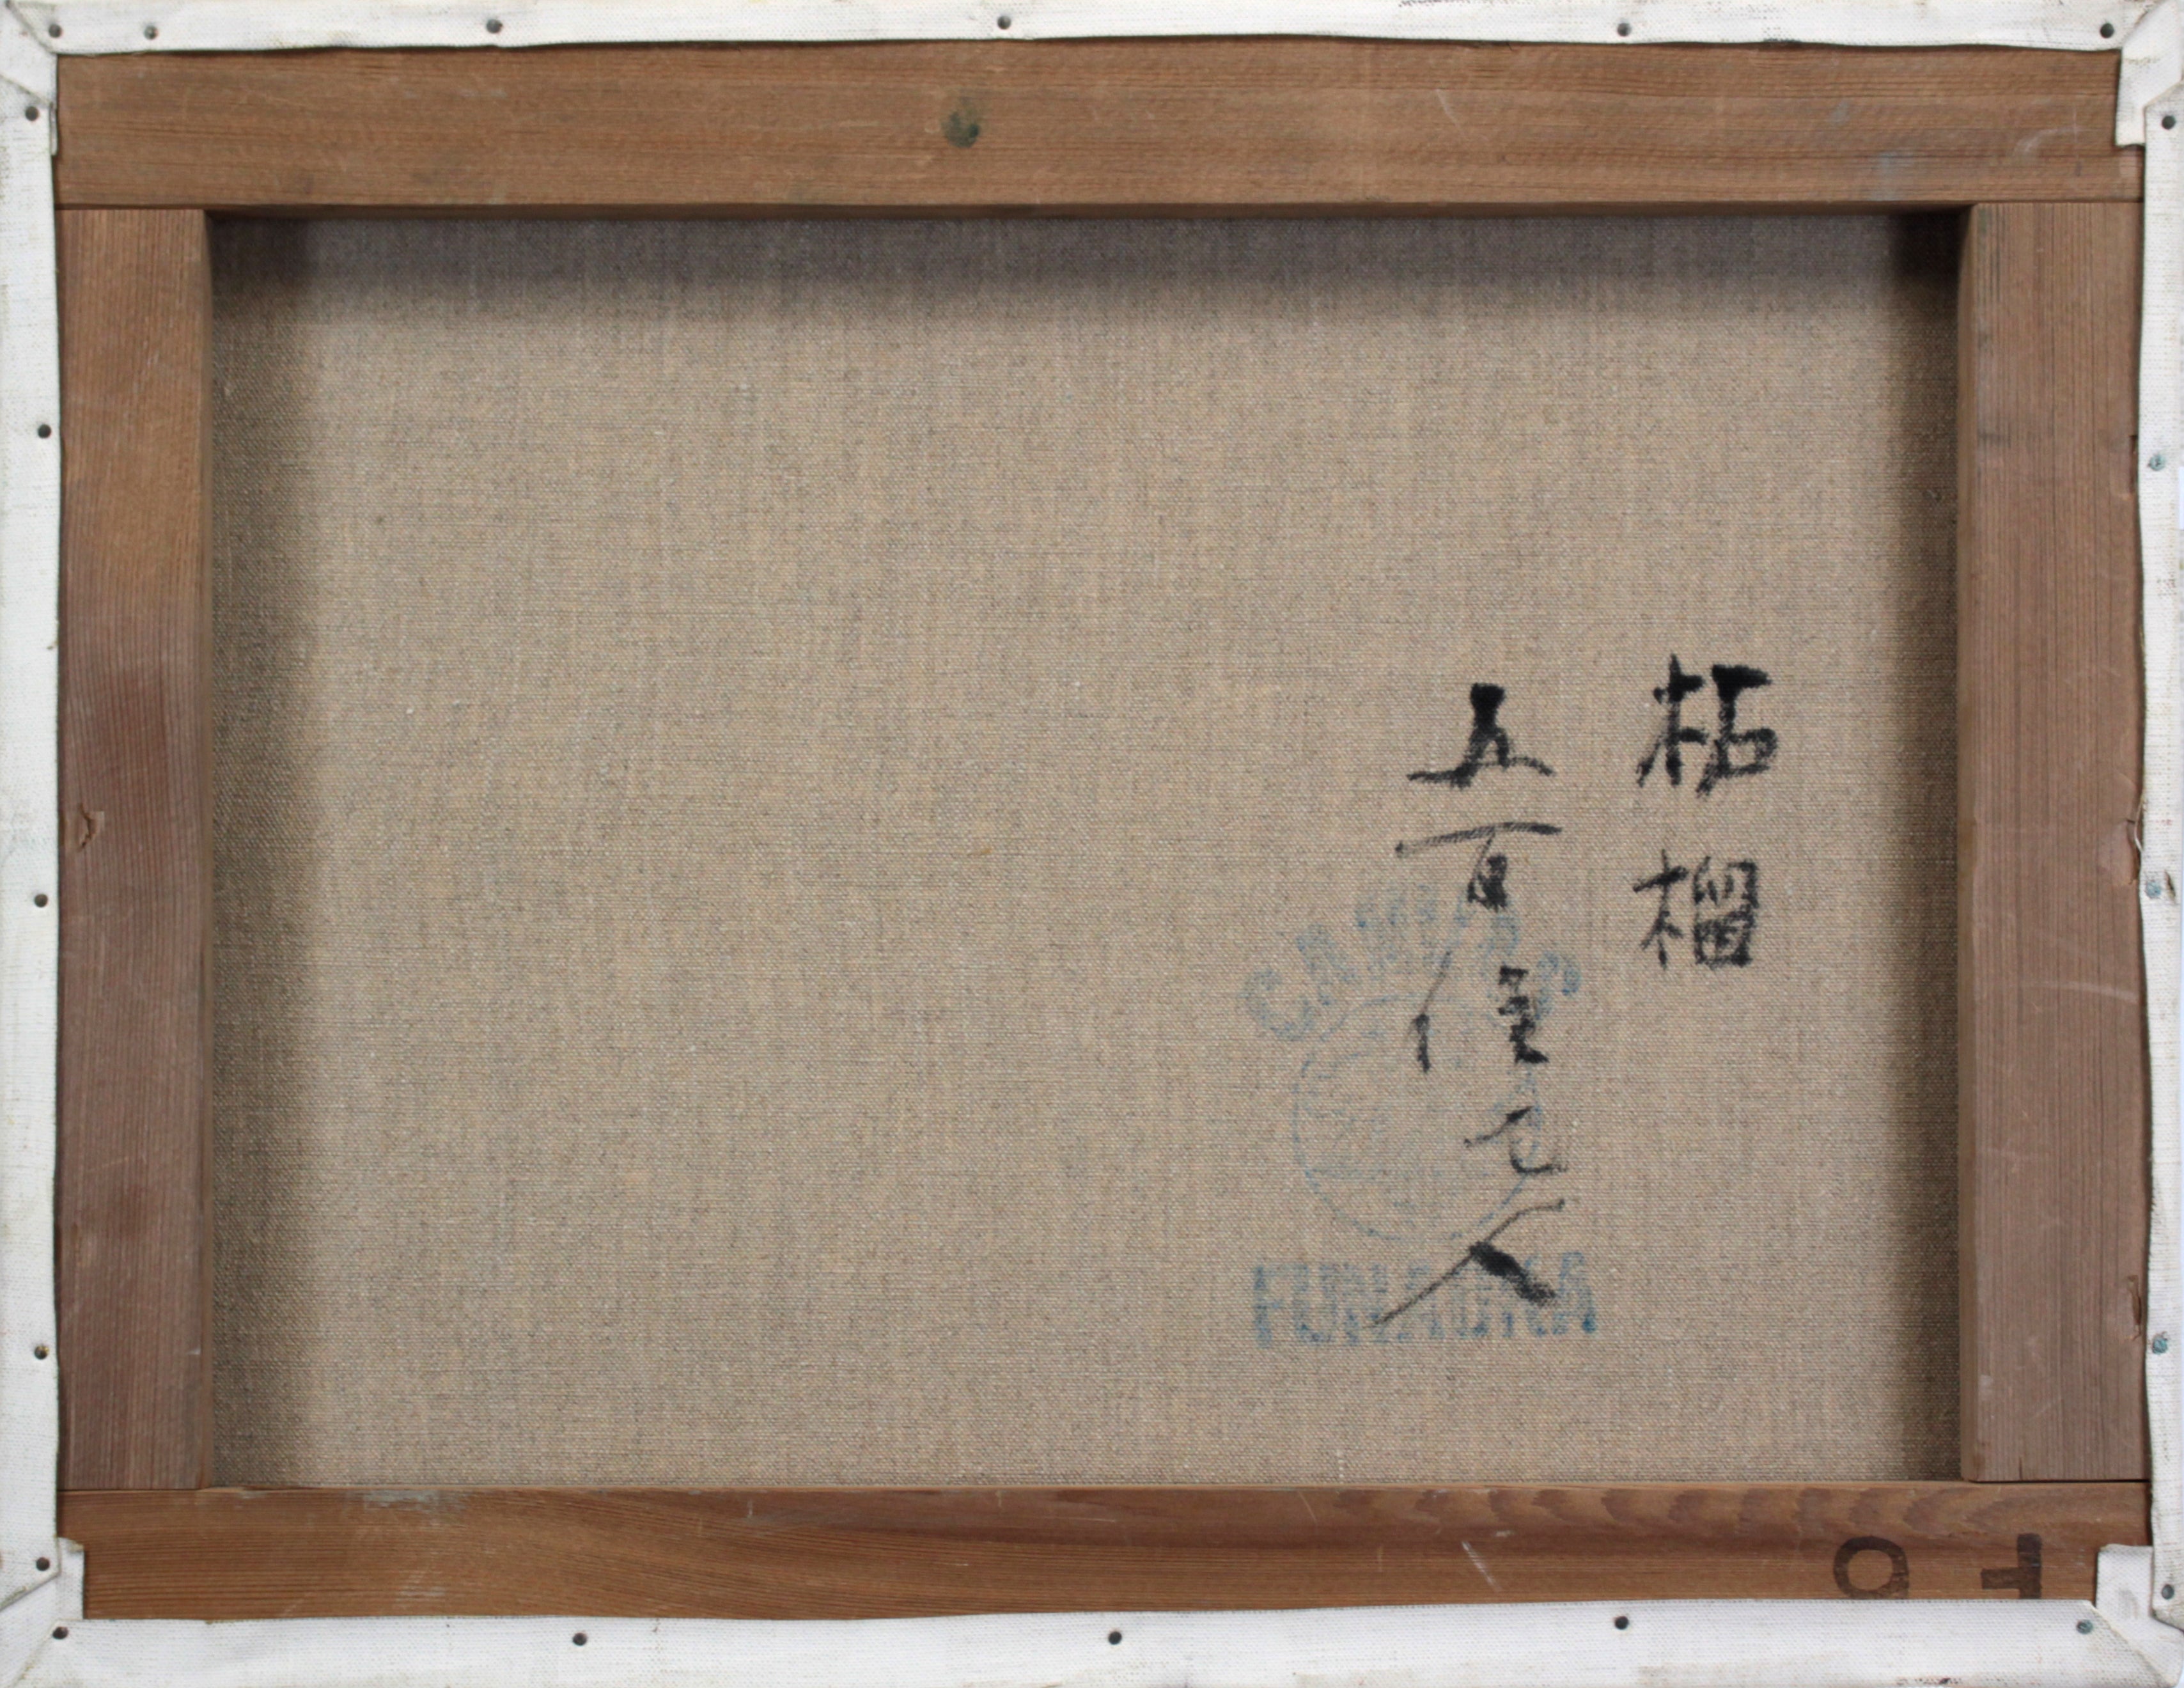 柘榴
五百住乙人
CANVAS
FUNAOKA